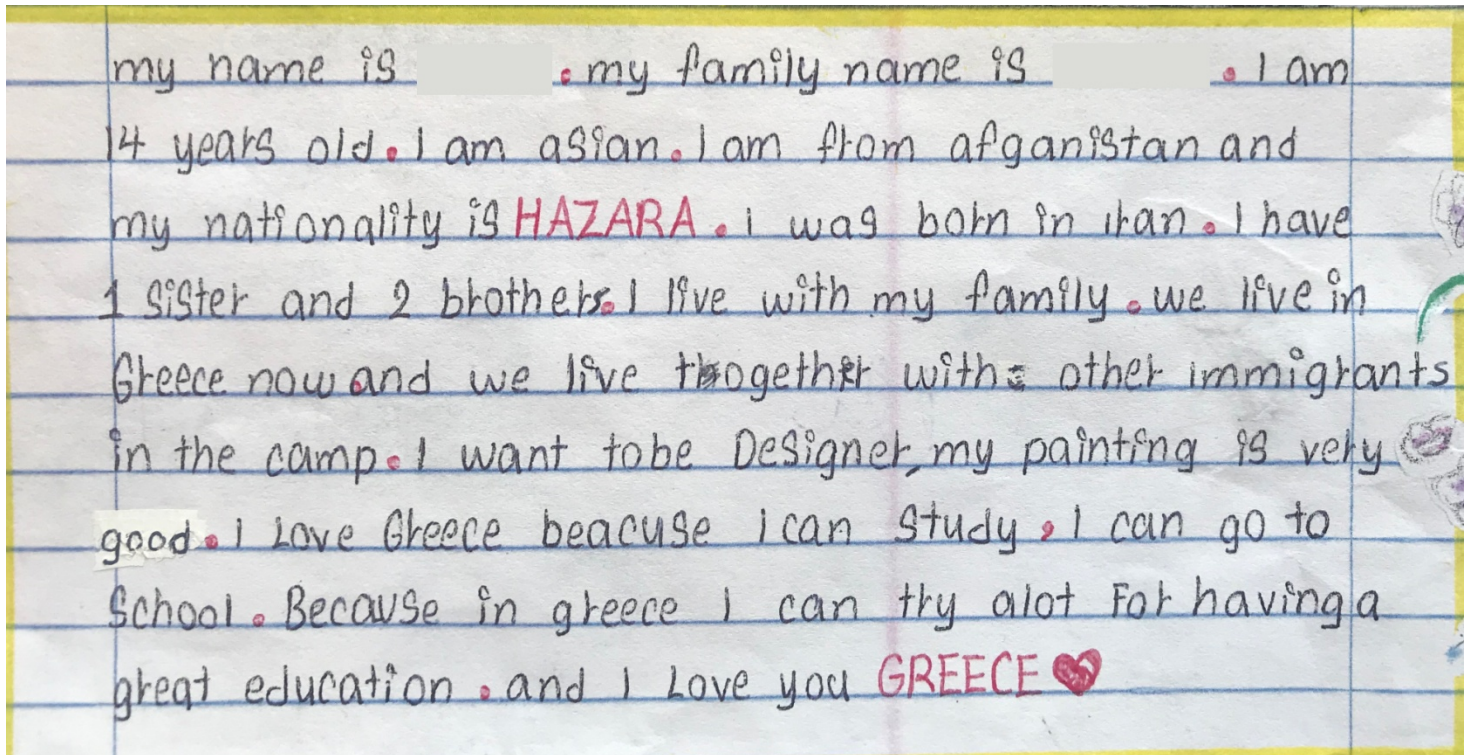 my name is . my family name is . I am
14 years old. I am asian. I am from afganistan and
my nationality is HAZARA. I was born in iran. I have
1 sister and 2 brothers. I live with my family. we live in
Greece now and we live together with other immigrants
in the camp. I want tobe Designer, my painting is very
good. I Love Greece beacuse i can study, I can go to
School. Because in greece I can try alot For having a
great education. and I Love you GREECE ❤